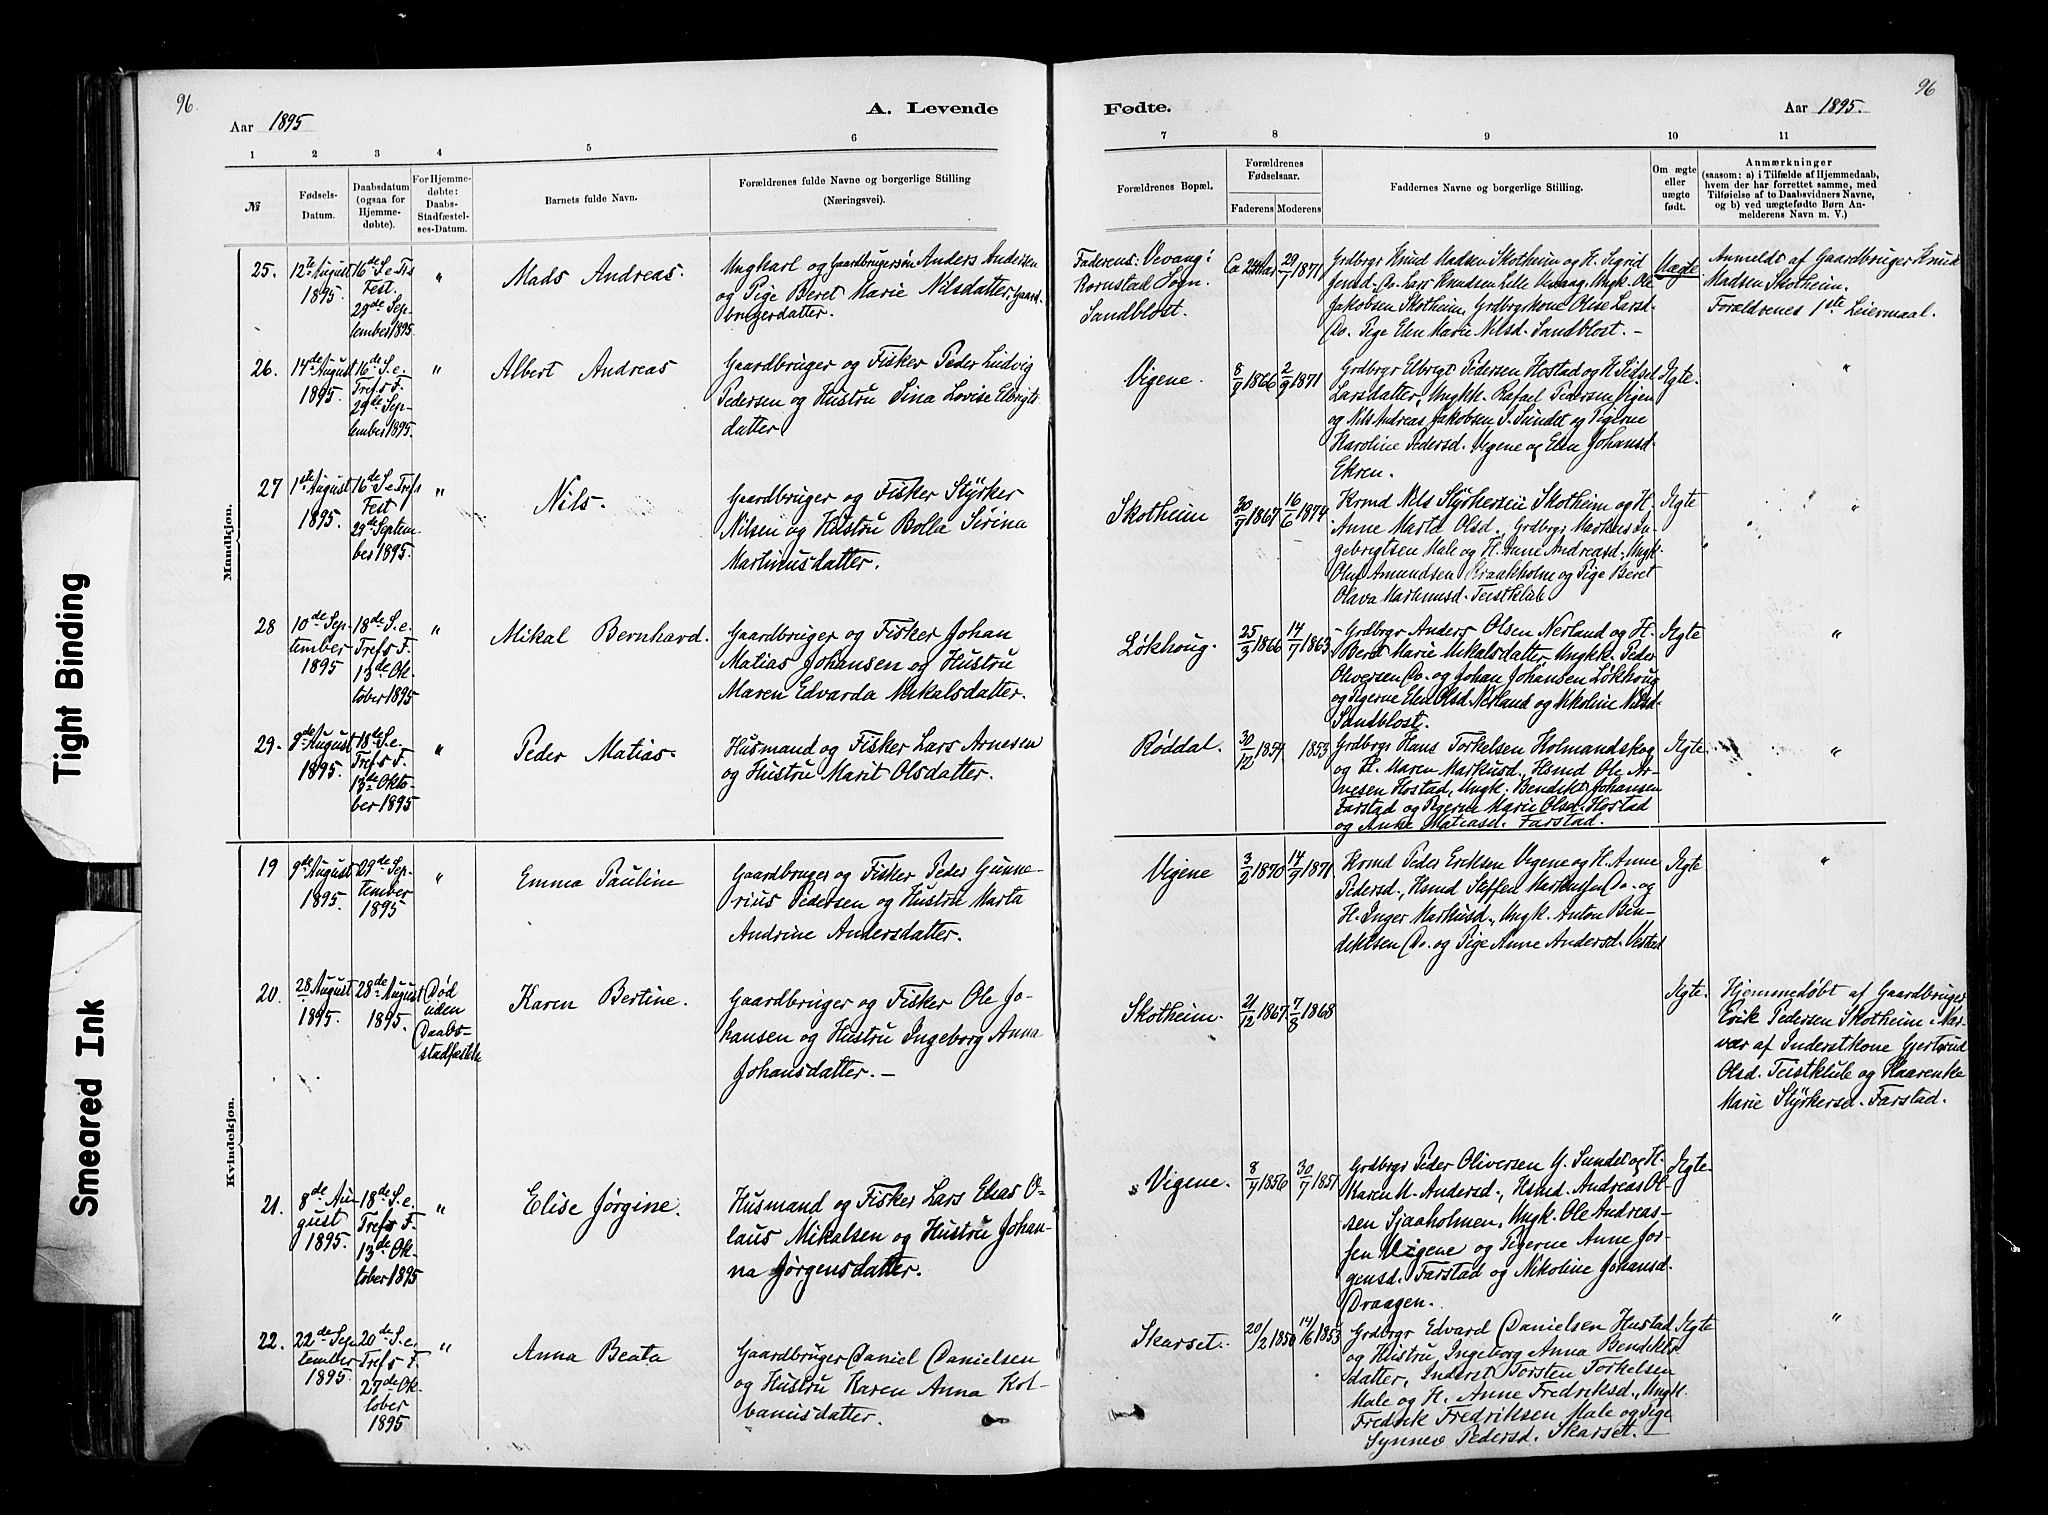 96.
A. Levende
Aar 1895
1 2 3 4 5 6
№
Fødsels-
Datum.
Daabsdatum
(ogsaa for
Hjemme-
døbte).
For Hjemme-
døbte:
Daabs-
Stadfæstel-
ses-Datum.
Barnets fulde Navn.
Forældrenes fulde Navne og borgerlige Stilling
(Næringsvei).
Mandkjøn.
25.
12te August
1895.
16de S. e. Trs
Fest.
29de Sep-
tember 1895.
"
Mads Andreas.
Ungkarl og Gaardbrugersøn Anders Andersen
og Pige Beret Marie Nilsdatter, Gaard-
brugerdatter.
26.
14de August
1895.
16de S. e.
Trefs F.
29de Sep-
tember 1895.
"
Albert Andreas
Gaardbruger og Fisker Peder Ludvig
Pedersen og Hustru Sina Lovise Elbrigts
datter.
27
1ste August
1895.
16de S. e. Trefs
Fest
29de Septem-
ber 1895.
"
Nils.
Gaardbruger og Fisker Styrker
Nilsen og Hustru Bolla Sirina
Martinusdatter.
28
10de Sep-
tember
1895
18de S. e.
Trefs F.
13de Ok-
tober 1895
"
Mikal Bernhard.
Gaardbruger og Fisker Johan
Matias Johansen og Hustru
Maren Edvarda Mikalsdatter.
29.
8de August
1895.
18de S. e.
Trefs F.
13de Okto-
ber 1895
"
Peder Matias.
Husmand og Fisker Lars Arnesen
og Hustru Marit Olsdatter.
Kvindekjøn.
19
9de August
1895.
29de Sep-
tember
1895
"
Emma Pauline
Gaardbruger og Fisker Peder Gunne-
rius Pedersen og Hustru Marta
Andrine Andersdatter.
20.
28 August
1895.
28de August
1895.
Død
uden
Daabs-
stadfæstelse
Karen Bertine.
Gaardbruger og Fisker Ole Jo-
hansen og Hustru Ingeborg Anna
Johansdatter. —
21.
8de Au-
gust
1895.
18de S. e.
Trefs F.
13de Ok-
tober 1895
"
Elise Jørgine.
Husmand og Fisker Lars Elias O-
laus Mikalsen og Hustru Johan-
na Jørgensdatter.
22.
22de Sep-
tember
1895.
20de S. e.
Trefs F.
27de Ok-
tober
1895
"
Anna Beata
Gaardbruger Daniel Danielsen
og Hustru Karen Anna Kol-
banusdatter.
96
Fødte.
Aar 1895.
7 8 9 10 11
Forældrenes Bopæl.
Forældrenes
Fødselsaar.
Faderens Moderens
Faddernes Navne og borgerlige Stilling.
Om ægte
eller
uægte
født.
Anmærkninger
(saasom: a) i Tilfælde af Hjemmedaab,
hvem der har forrettet samme, med
Tilføielse af to Daabsvidners Navne,
og b) ved uægtefødte Børn An-
melderens Navn m. V.)
Faderens: Vevang i
Kornstad Sogn.
Sandblost.
29/7 1871
Grdbrgr Knud Madsen Skotheim og H. Sigrid
Jensd. Do. Lars Knudsen Lille Vevaag. Ungk. Ole
Jakobsen Skotheim, Grdbrgrkone Olise Larsd.
Do. Pige Elen Marie Nilsd. Sandblost. —
Uægte
Anmeldt af Gaardbruger Knud
Madsen Skotheim.
Forældrenes 1ste Leiermaal.
Vigene.
8/9 1866 2/9 1871
Grdbrgr Elbrigt Pedersen Hostad og H. Sidsel
Larsdatter, Ungk. Rafael Pedersen Vigen
og Nils Andreas Jakobsen I. Sundet og Pigerne
Karoline Pedersd. Vigene og Elen Johansd.
Ekren.
Ægte.
"
Skotheim
30/7 1867 16/6 1874
Krmd Nils Styrkersen Skotheim og H.
Anne Marta Olsd., Grdbrgr Markus In-
gebrigtsen Male og H. Anne Andreasd., Ungk.
Oluf Amundsen Kraakholm og Pige Beret
Olava Martinusd. Teistklub
Ægte
"
Løkhoug.
25/3 1866 14/7 1863
Grdbrgr Anders Olsen Nerland og H.
Beret Marie Mikalsdatter, Ungkk. Peder
Oliversen Do. og Johan Johansen Løkhoug
og Pigerne Elen Olsd. Nerland og Nikoline Nilsd.
Sandblost.
Ægte
"
Røddal.
30/12 1854 1853
Grdbrgr Hans Torkelsen Holmandskog
og H. Maren Markusd., Hsmd Ole Ar-
nesen Hostad, Ungk. Bendikt Johansen
Farstad og Pigerne Marie Olsd. Hostad
og Anne Matiasd. Farstad.
Ægte
"
Vigene
3/2 1870 14/9 1871
Krmd Peder Eriksen Vigene og H. Anne
Pedersd., Hsmd Steffen Markussen Do. og
H. Inger Markusd., Ungk. Anton Ben-
diktsen Do. og Pige Anne Andersd. Vestad
Ægte
"
Skotheim.
21/12 1867. 7/8 1868
Ægte.
Hjemmedøbt af Gaardbruger
Erik Pedersen Skotheim i Nær-
vær af Inderstkone Gjertrud
Olsd. Teistklub og Haarenke
Marie Styrkersd. Farstad.
Vigene.
8/4 1856 30/7 1851
Grdbrgr Peder Oliversen Y. Sundet og H.
Karen M. Andersd., Hsmd. Andreas Ol-
sen Sjaaholmen, Ungk. Ole Andreas-
sen Vigene og Pigerne Anne Jør-
gensd. Farstad og Nikoline Johansd.
Draagen.
Ægte
Skarset.
20/2 1850 14/6 1853
Grdbrgr Edvard Danielsen Hustad
og Hustru Ingeborg Anna Bendikts
datter, Inderst Torsten Torkelsen
Male og H. Anne Fredriksd., Ungk.
Fredrik Fredriksen Male og Pige
Synnev Pedersd. Skarset. —
Ægte
"
Tight Binding
Smeared Ink